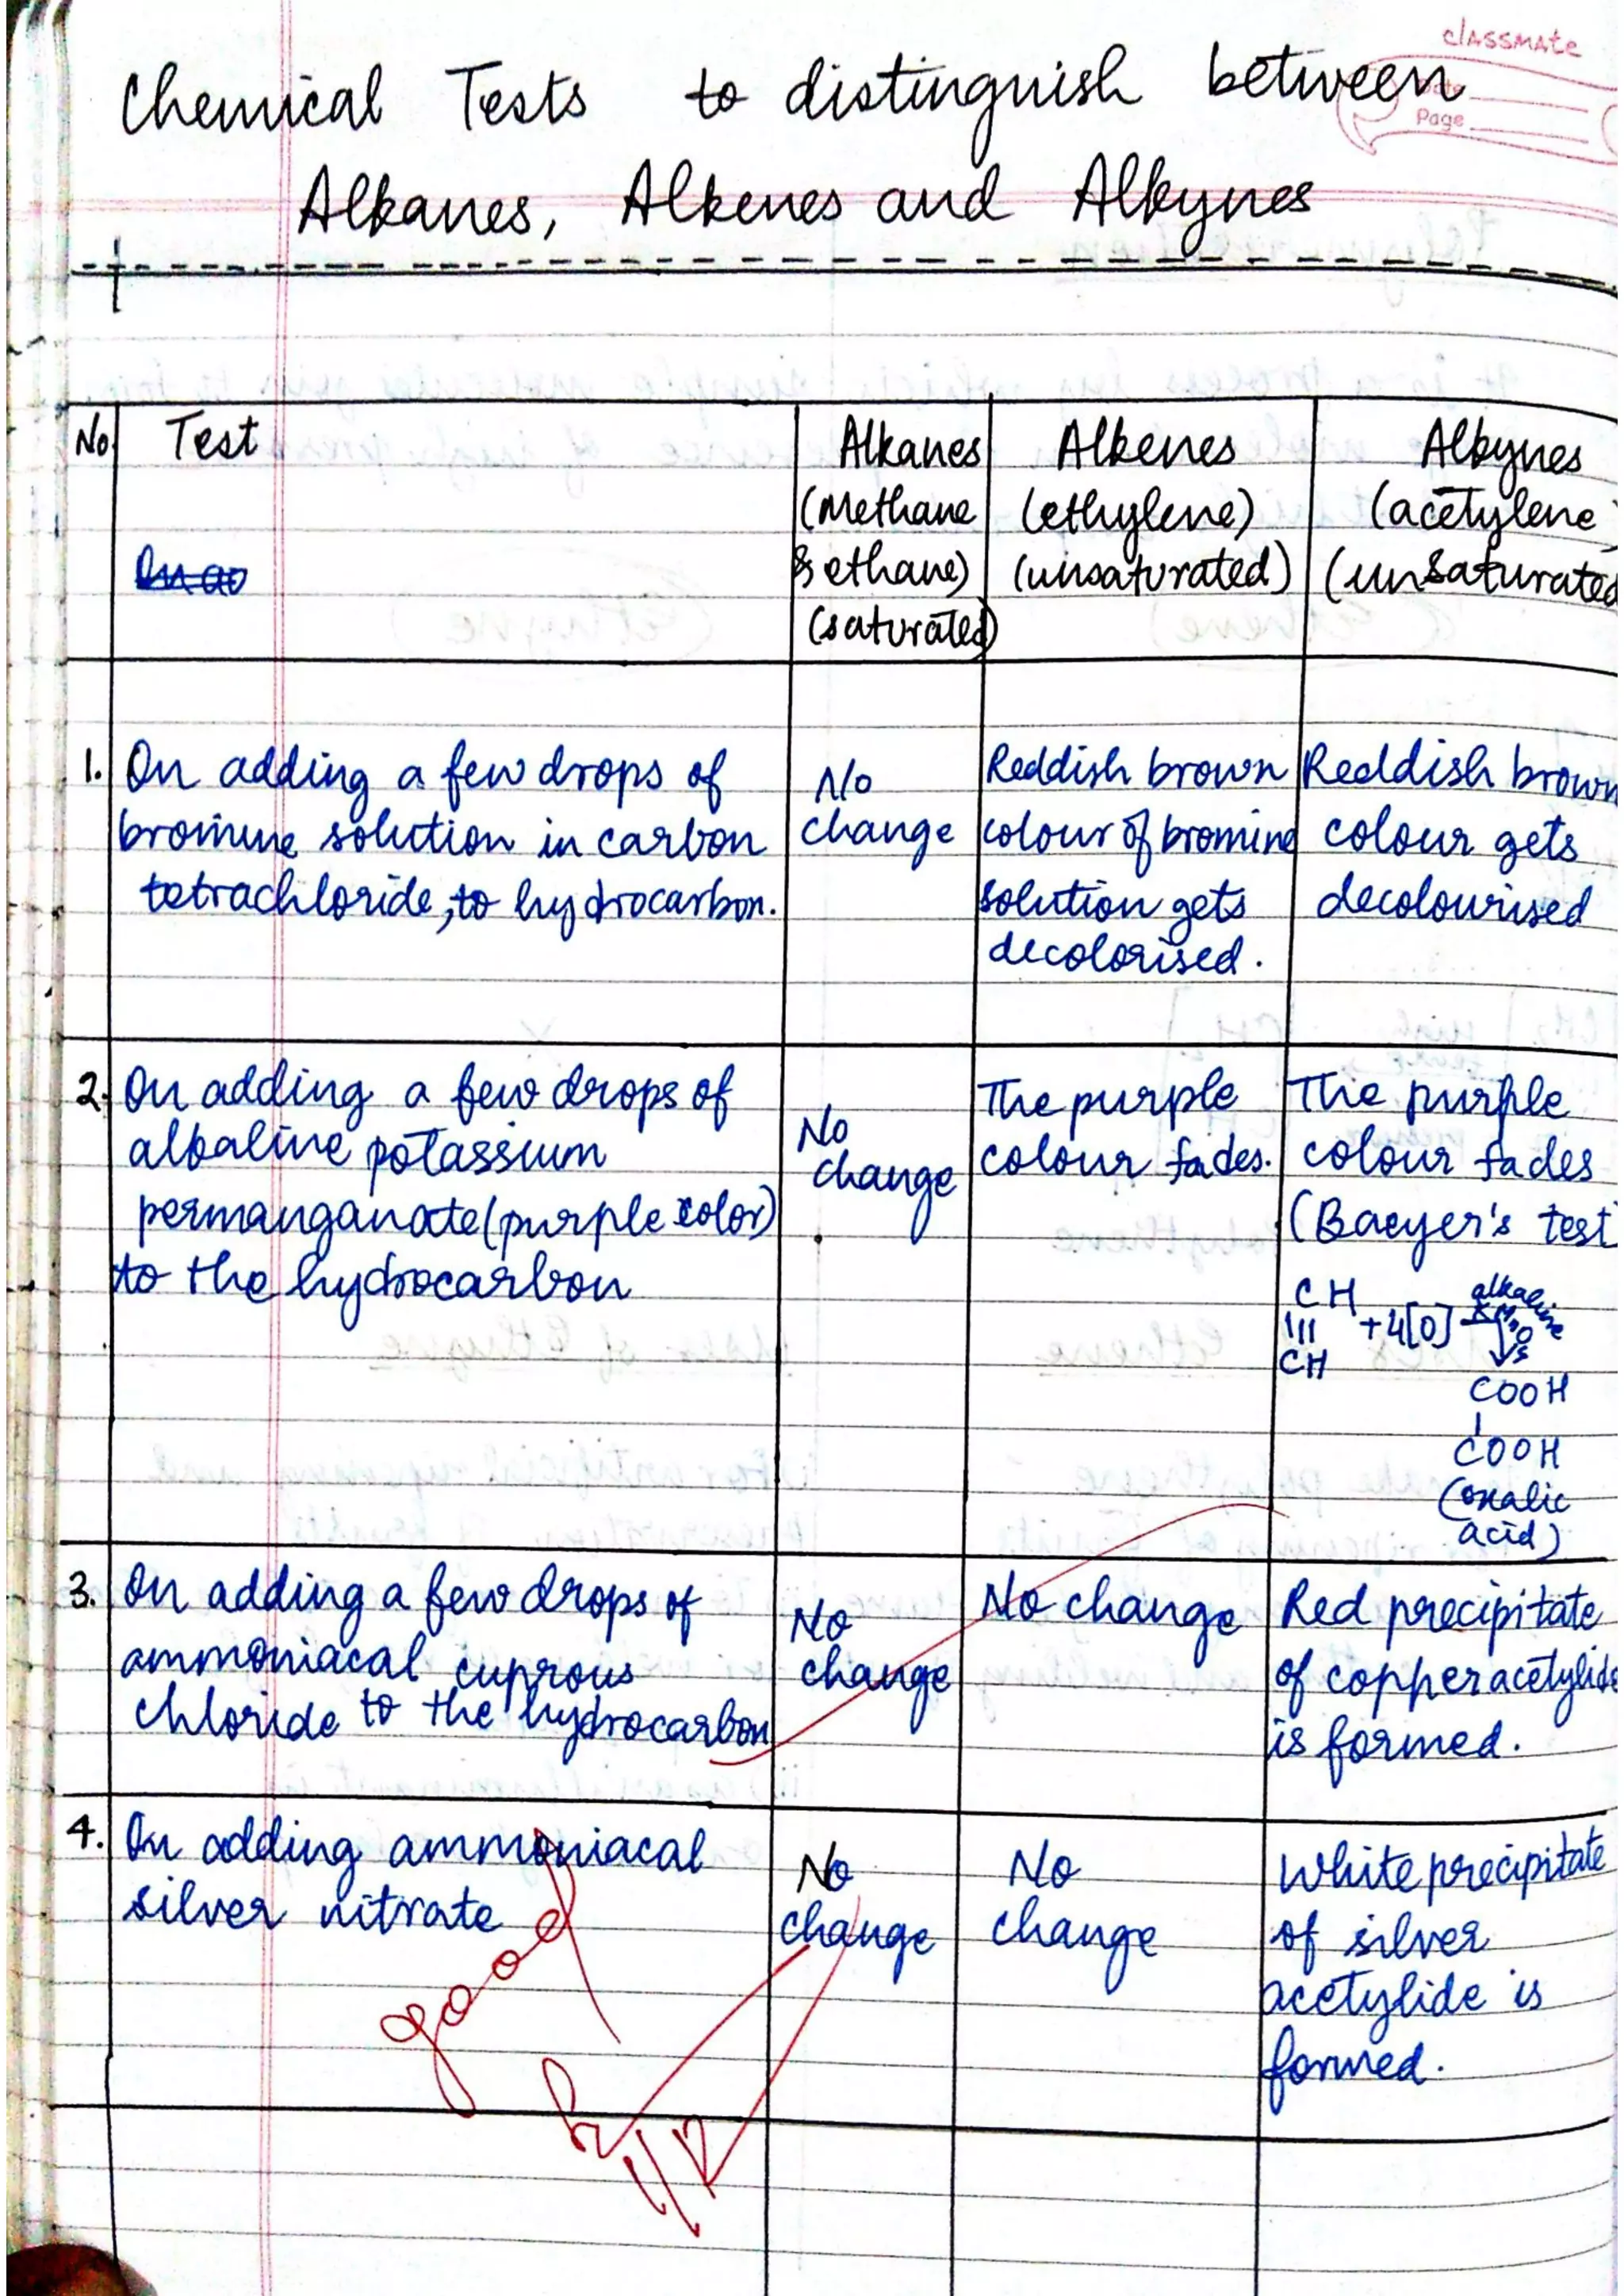 classmate
Date
Page
Chemical Tests to distinguish between
Alkanes, Alkenes and Alkynes
No. Test Alkanes Alkenes Alkynes
(Methane (ethylene) (acetylene)
& ethane) (unsaturated) (unsaturated
(saturated)
1. On adding a few drops of
bromine solution in carbon
tetrachloride, to hydrocarbon.
No
change
Reddish brown
colour of bromine
solution gets
decolorised.
Reddish brown
colour gets
decolourised
2. On adding a few drops of
alkaline potassium
permanganate (purple color)
to the hydrocarbon
No
change
The purple
colour fades.
The purple
colour fades
(Baeyer's test
CH
||| +4[O] alkaline KMnO4
CH
COOH
|
COOH
(oxalic
acid)
3. On adding a few drops of
ammoniacal cuprous
chloride to the hydrocarbon
No
change
No change
Red precipitate
of copper acetylide
is formed.
4. On adding ammoniacal
silver nitrate
No
change
No
change
White precipitate
of silver
acetylide is
formed.
good